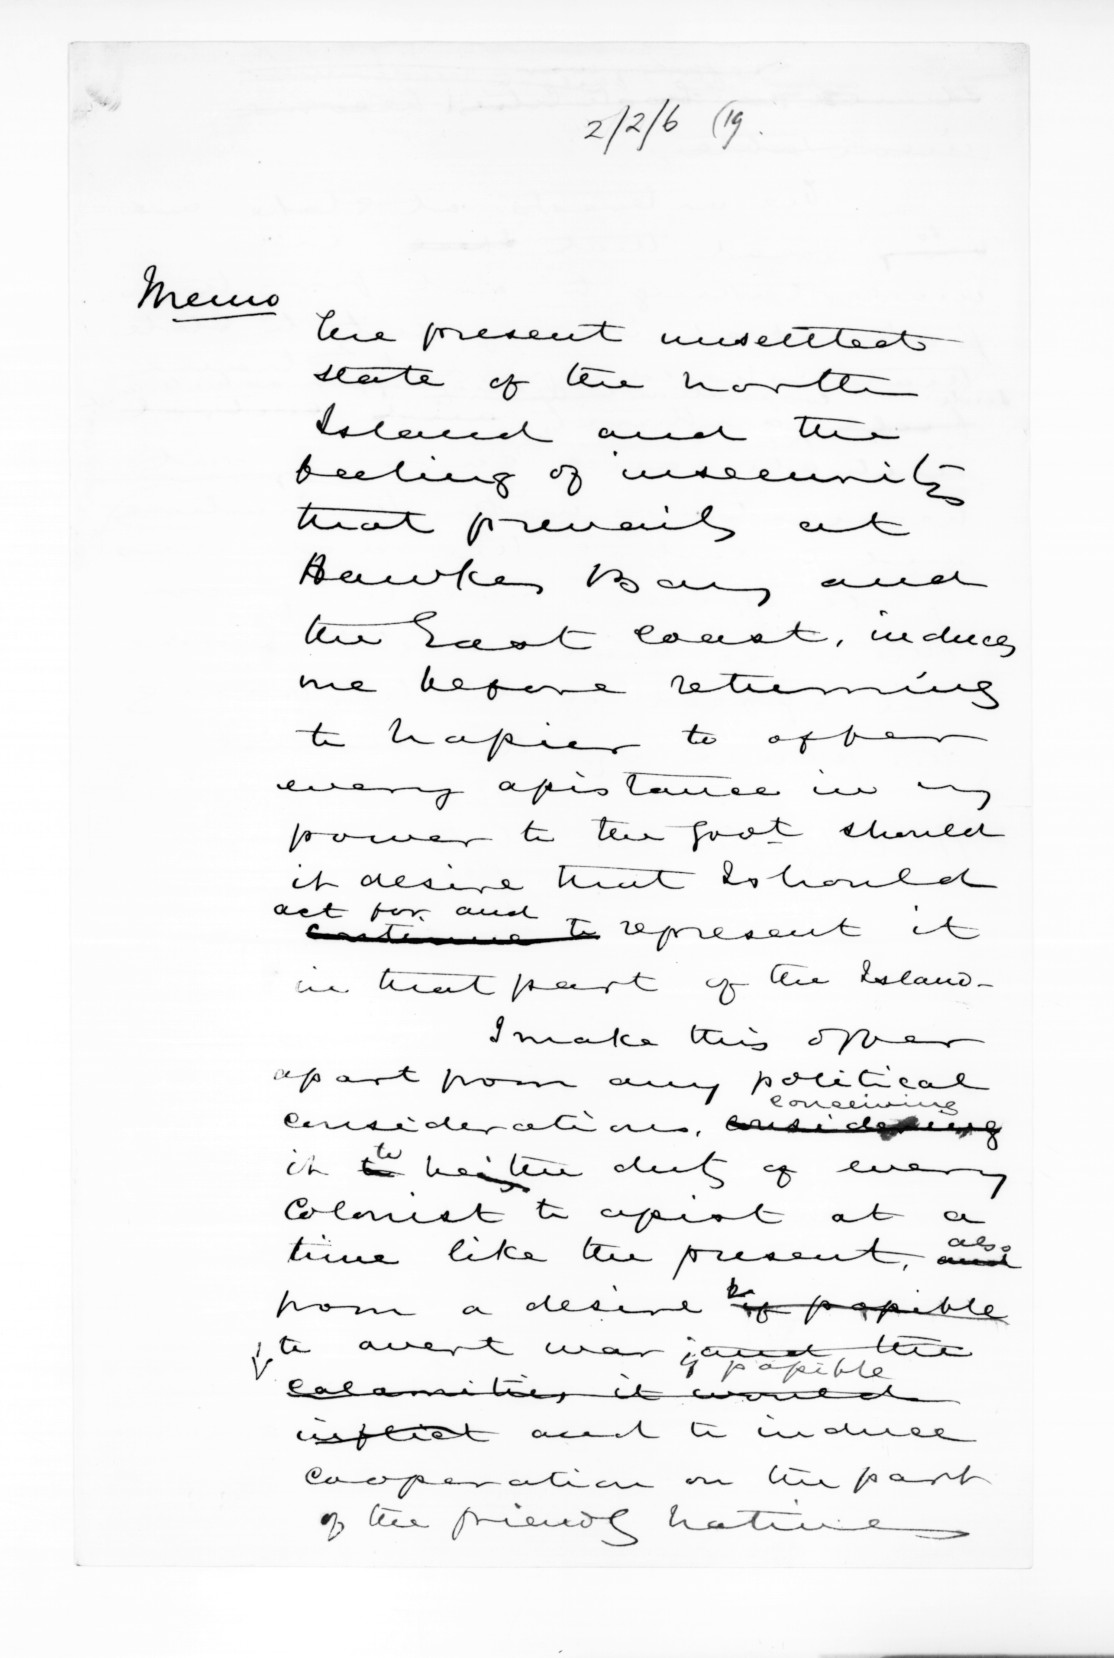 2/2/6 (19.
Memo
The present unsettled
state of the North
Island and the
feeling of insecurity
that prevails at
Hawkes Bay and
the East Coast, induces
me before returning
to Napier to offer
every assistance in my
power to the Govt should
it desire that I should
act for and
continue to represent it
in that part of the Island-
I make this offer
apart from any political
conceiving
considerations, considering
to
it to being the duty of every
Colonist to assist at a
also
time like the present, and
from a desire if possible
to avert war and the
if possible
calamities it would
inflict and to induce
cooperation on the part
of the friendly Natives